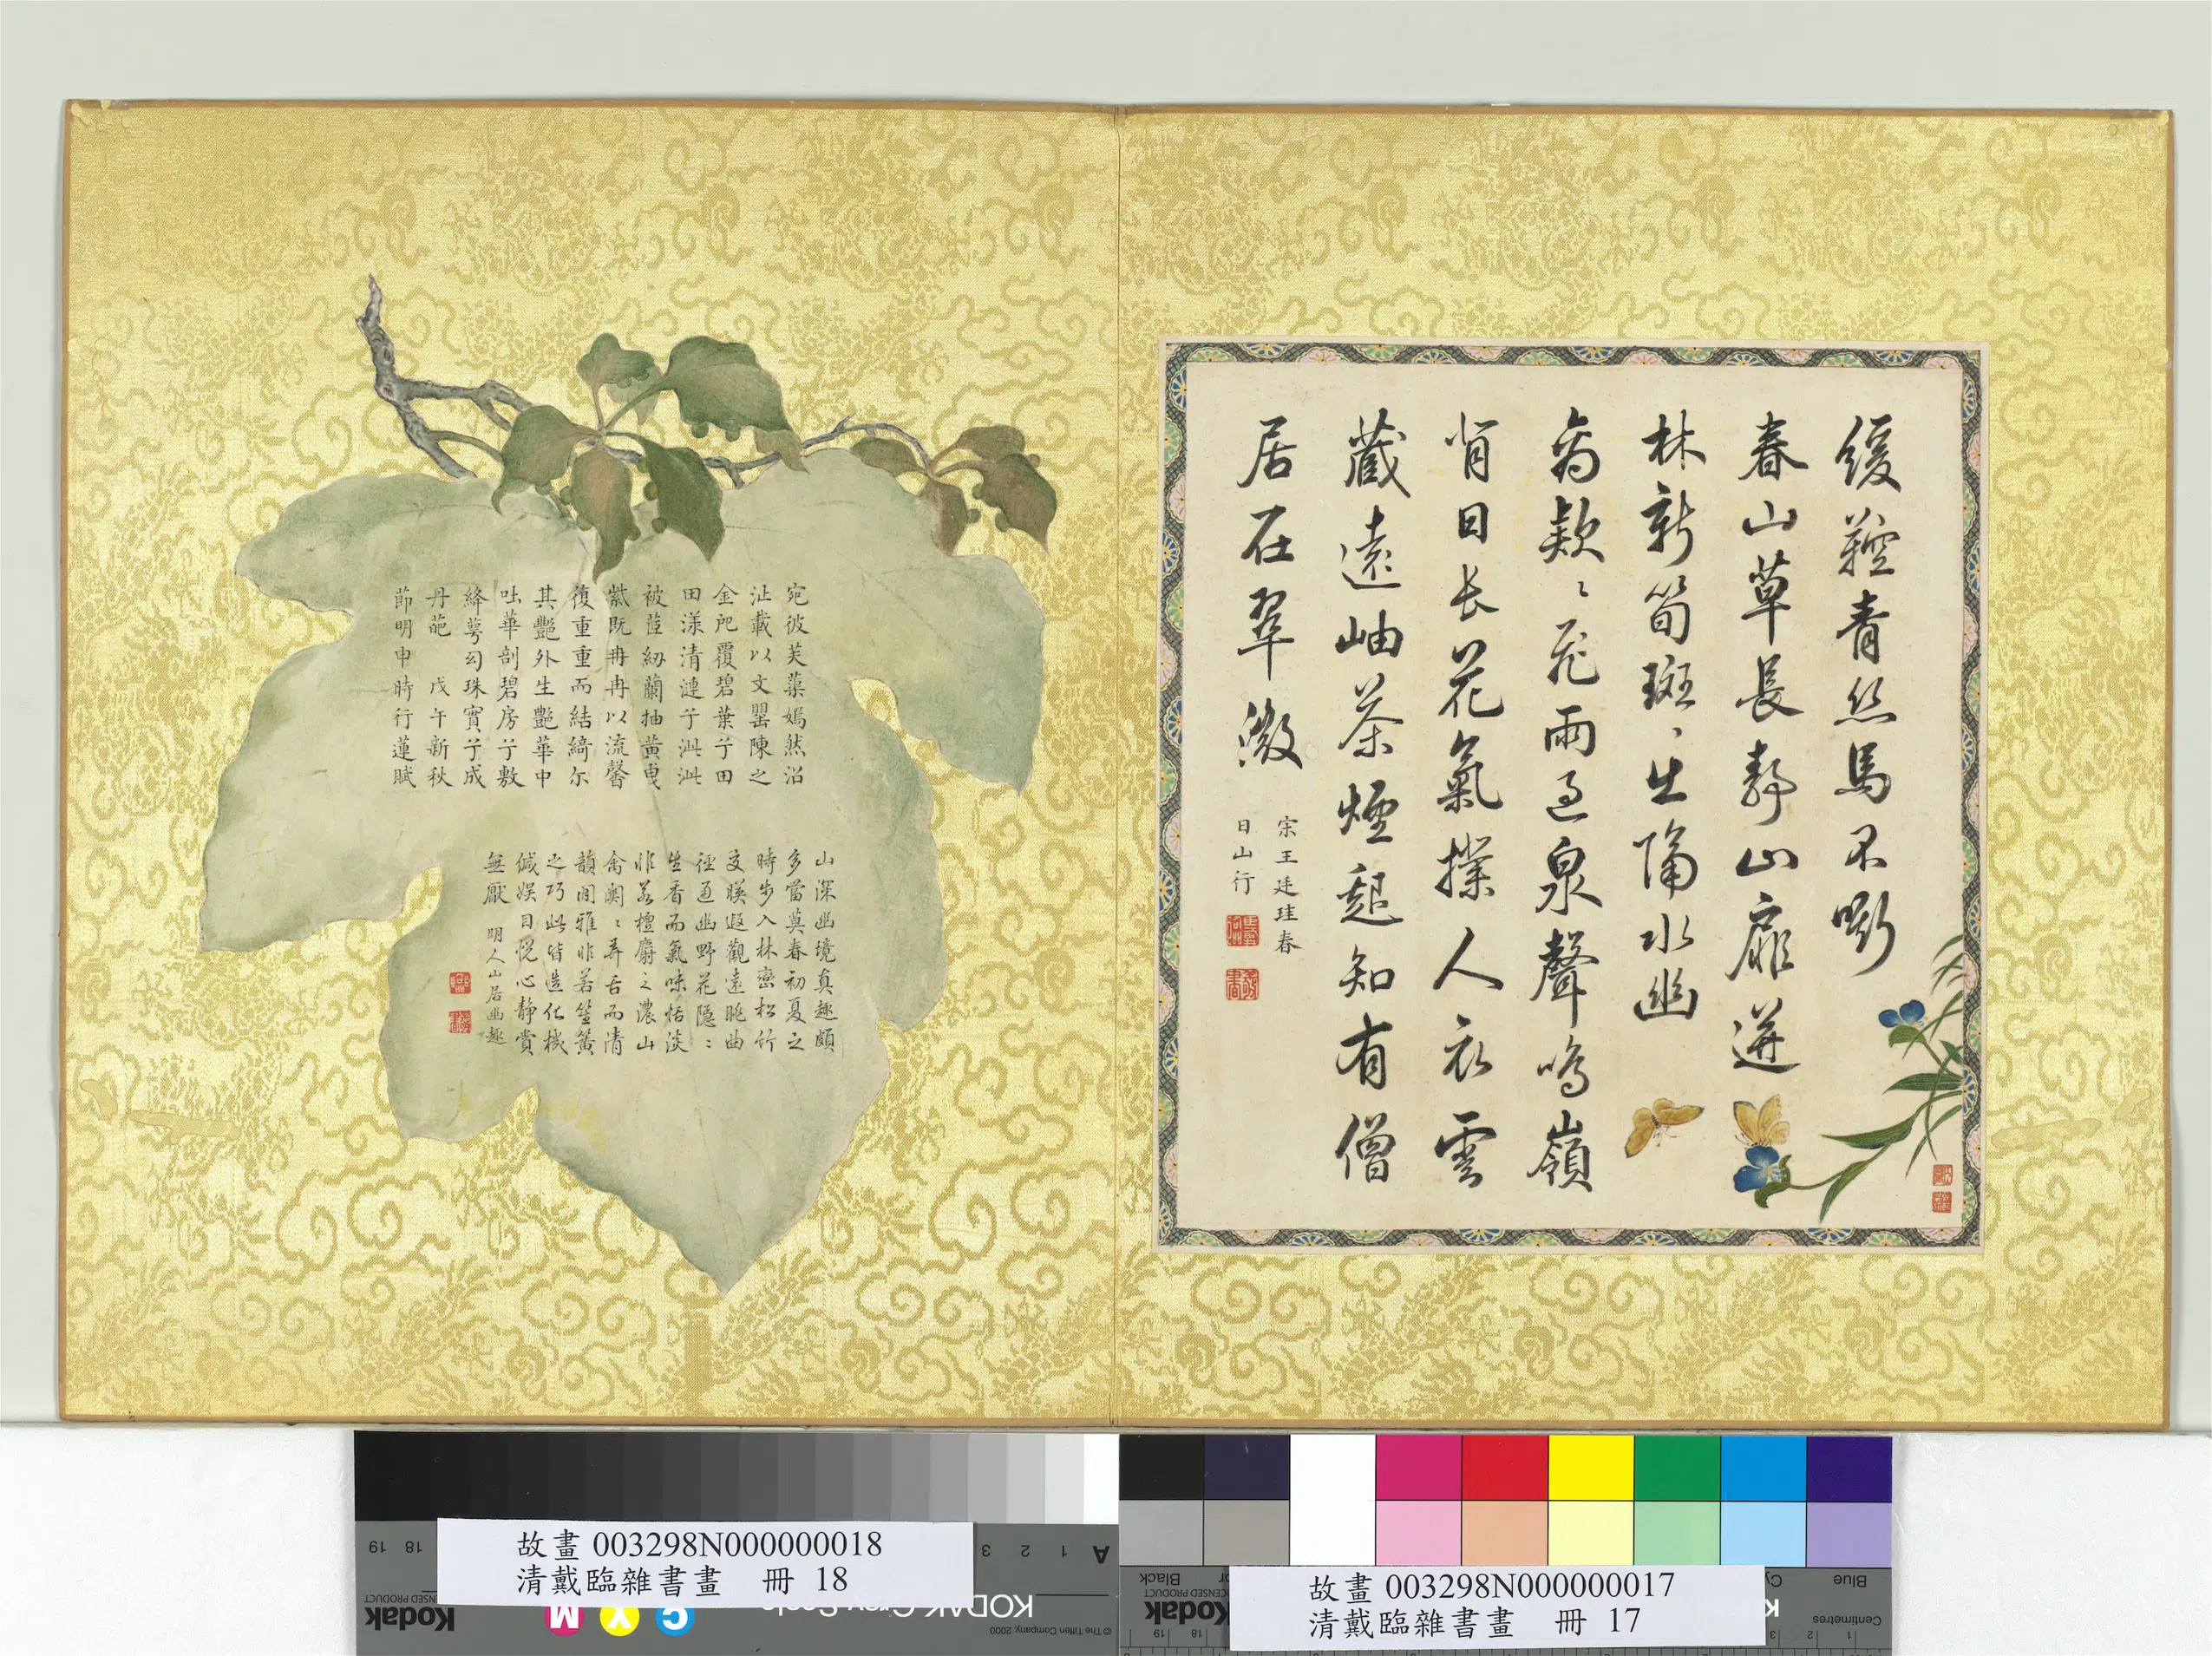 緩鞚青絲馬不嘶
春山草長靜山扉迸
林新筍斑、生隔水幽
禽款〻飛雨過泉聲鳴嶺
背日長花氣撲人衣雲
藏遠岫茶煙起知有僧
居在翠微
宋王廷珪春
日山行
宛彼芙蕖嫣然沼
沚載以文罍陳之
金戺覆碧葉兮田
田漾清漣兮沘沘
被荏紉蘭抽黃曳
紫既冉冉以流馨
復重重而結綺尔
其艷外生艷華中
吐華剖碧房兮敷
絳萼勾珠實兮成
丹葩 戊午新秋
節明申時行蓮賦
山深幽境真趣頗
多當莫春初夏之
時步入林巒松竹
交暎遐觀遠眺曲
徑通幽野花隱〻
生香而氣味恬淡
非若檀麝之濃山
禽關〻弄舌而清
韻閒雅非若笙簧
之巧此皆造化機
緘娛目悅心靜賞
無厭 明人山居幽趣
故畫 003298N000000018
清戴臨雜書畫 冊 18
故畫 003298N000000017
清戴臨雜書畫 冊 17
KODAK
Kodak
LICENSED PRODUCT
© The Tiffen Company, 2000
A 1 2 3
18 19
M Y C
Black
Blue
Centimetres
Kodak
LICENSED PRODUCT